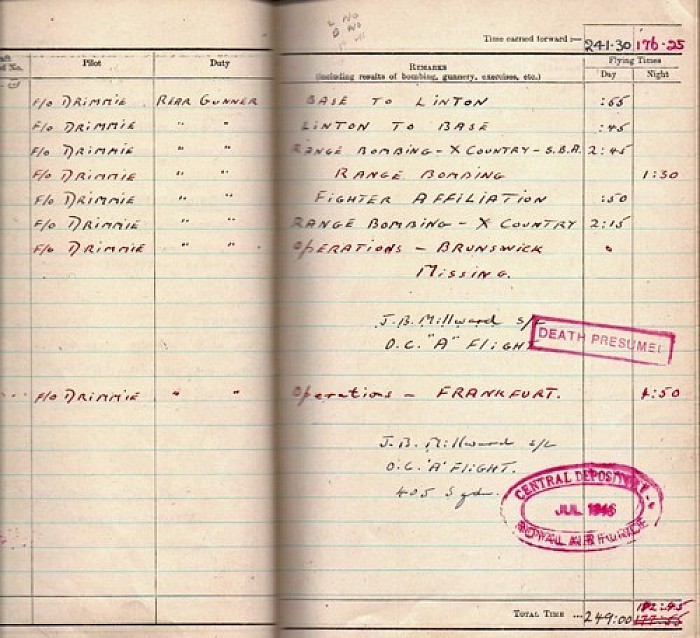 Time carried forward :— 241·30 176·25
Pilot Duty REMARKS Flying Times
(including results of bombing, gunnery, exercises, etc.) Day Night
F/O DRIMMIE REAR GUNNER BASE TO LINTON :55
F/O DRIMMIE " " LINTON TO BASE :45
F/O DRIMMIE " " RANGE BOMBING - X COUNTRY - S.B.A. 2:45
F/O DRIMMIE " " RANGE BOMBING 1:30
F/O DRIMMIE " " FIGHTER AFFILIATION :50
F/O DRIMMIE " " RANGE BOMBING - X COUNTRY 2:15
F/O DRIMMIE " " OPERATIONS - BRUNSWICK
MISSING.
J.B. Millward S/L
O.C. "A" FLIGHT
DEATH PRESUMED
F/O DRIMMIE " " Operations - FRANKFURT. 4:50
J.B. Millward S/L
O.C. "A" FLIGHT.
405 Sqdn.
CENTRAL DEPOSITORY
JUL 1946
ROYAL AIR FORCE
TOTAL TIME ... 249:00 182:45
177:55